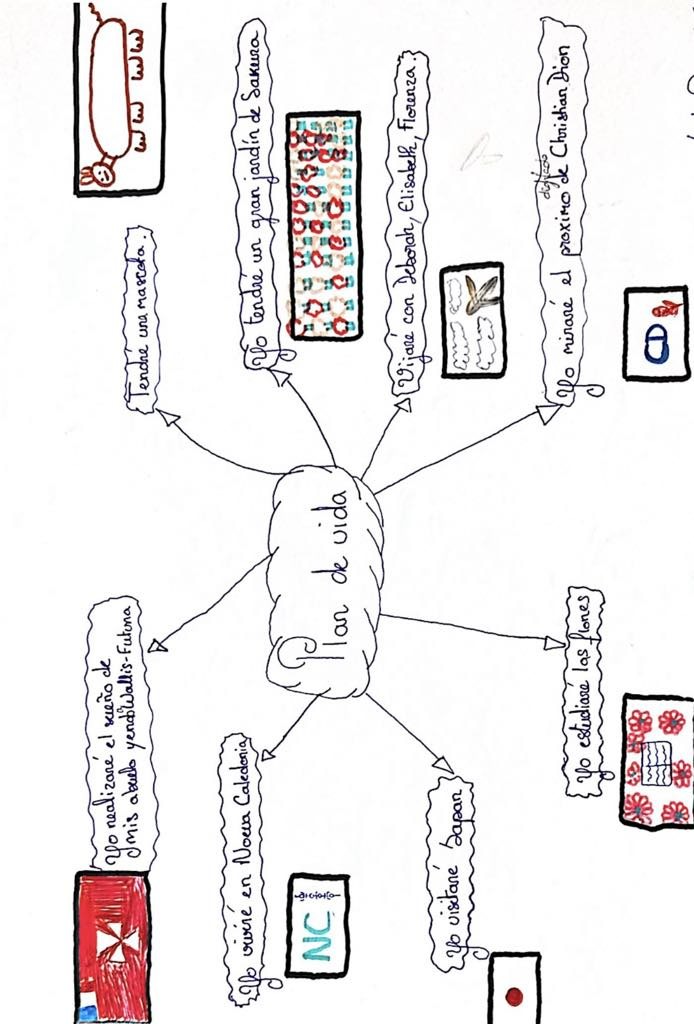 Plan de vida
Yo realizaré el sueño de
mis abuelo yendo Wallis-Futuna
Tendré una mascota.
Yo viviré en Noeva Caledonia
NC
Yo tendré un gran jardín de Sakura
Yo visitaré Japan
Vijaré con Deborah, Elisabeth, Florenza.
Yo estudiaré las flores
Yo miraré el proximo de Christian Dion
CD